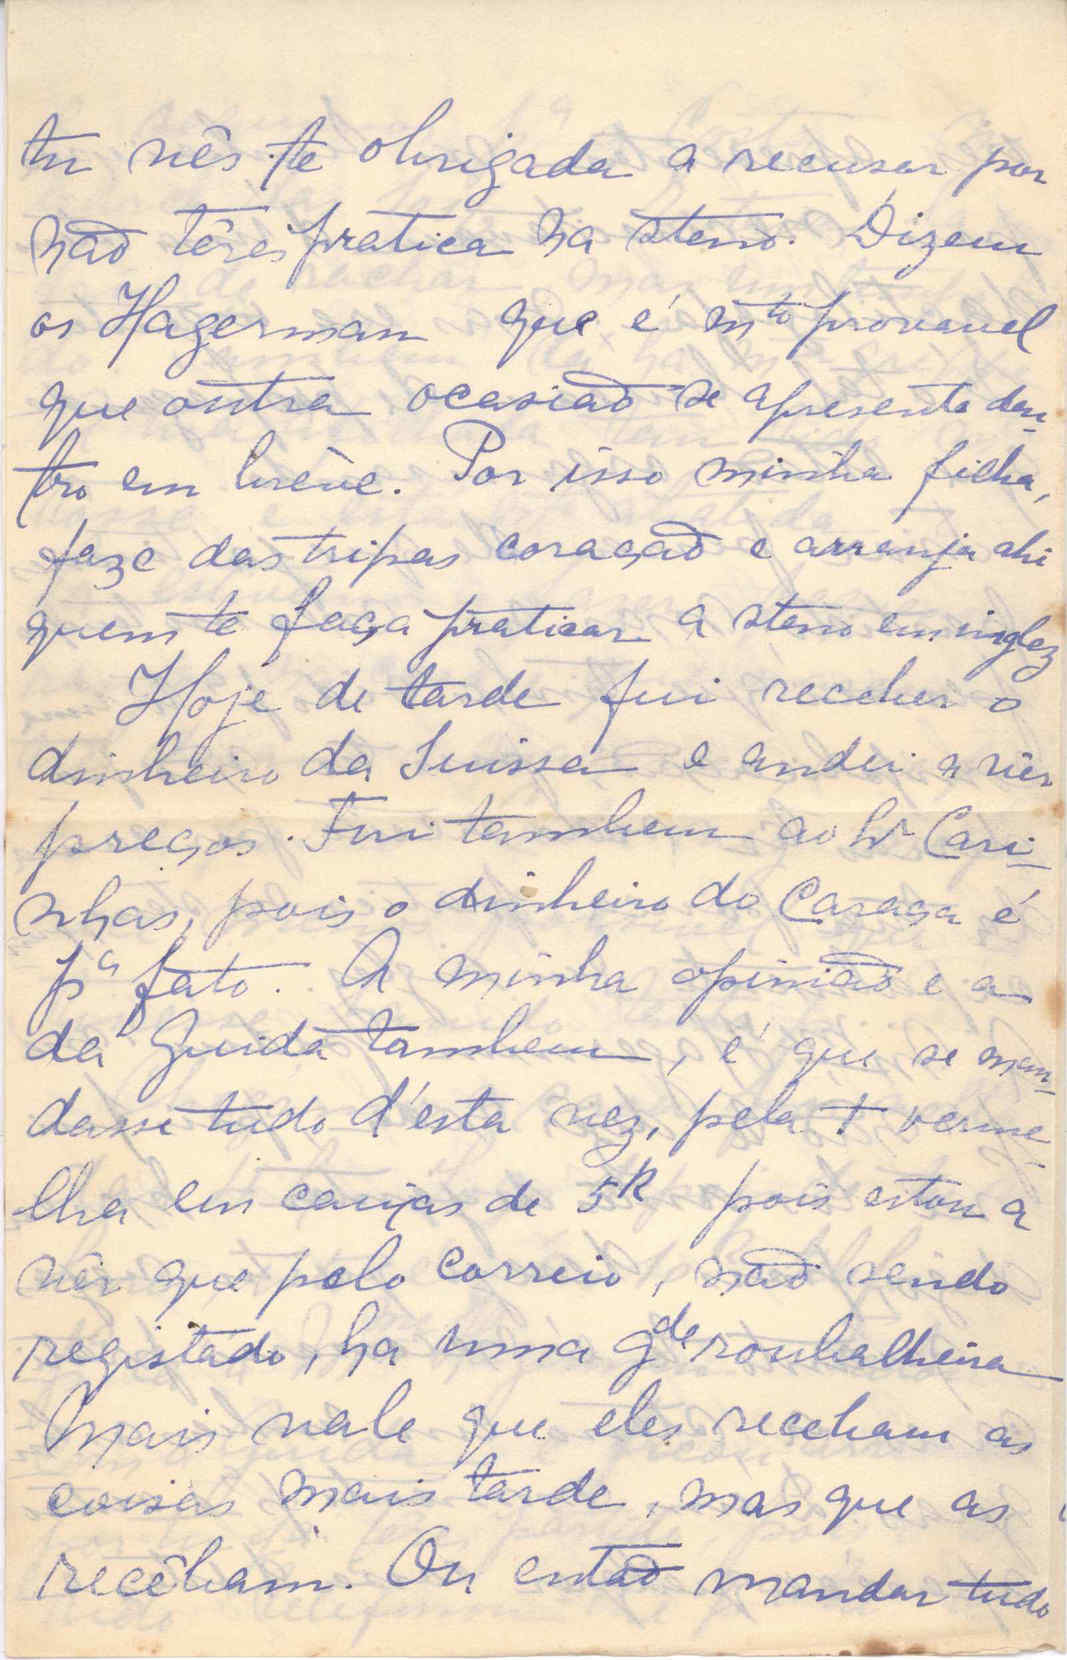 tu vês-te obrigada a recusar por
não têres pratica na steno. Dizem
os Hagerman que é mto provavel
que outra ocasião se apresente den-
tro em brève. Por isso minha filha,
faze das tripas coração e arranja ahi
quem te faça praticar a steno em inglez
Hoje de tarde fui receber o
dinheiro da Suissa e andei a vêr
preços. Fui tambem ao Sr Cari-
nhas, pois o dinheiro do Caraça é
pa fato. A minha opinião e a
da Guida tambem, é que se man-
dasse tudo d'esta vez, pela + verme-
lha em caixas de 5K pois estou a
vêr que pelo correio, não sendo
registado, ha uma gde roubalheira
Mais vale que eles recebam as
coisas mais tarde, mas que as
recêbam. Ou então mandar tudo